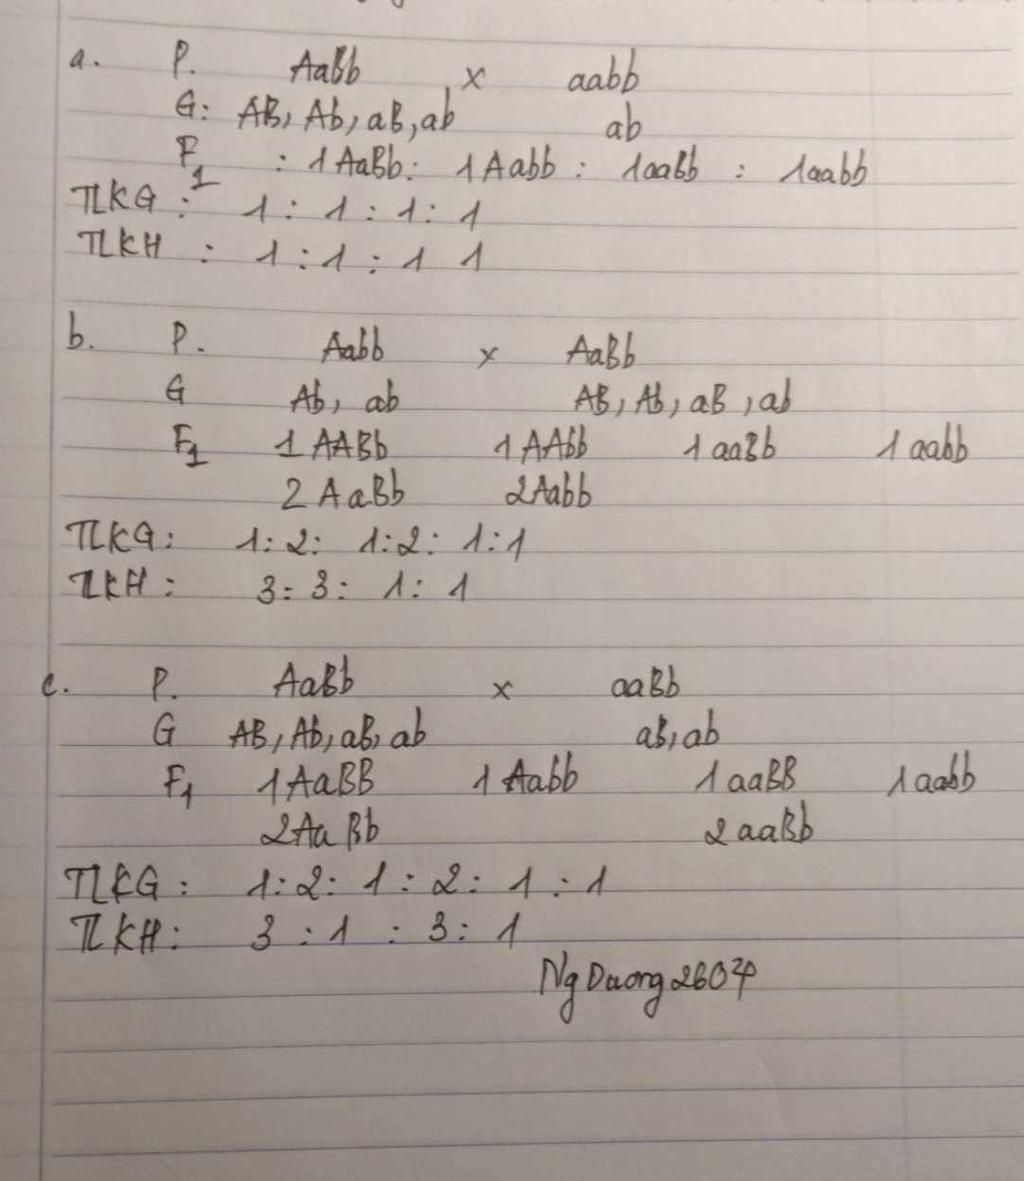 a. P. AaBb x aabb
G: AB, Ab, aB, ab ab
F1 : 1AaBb : 1Aabb : 1aaBb : 1aabb
TLKG : 1 : 1 : 1 : 1
TLKH : 1 : 1 : 1 1
b. P. Aabb x AaBb
G Ab, ab AB, Ab, aB, ab
F1 1AABb 1AAbb 1aaBb 1aabb
2AaBb 2Aabb
TLKG: 1:2: 1:2: 1:1
TLKH : 3:3: 1: 1
c. P. AaBb x aaBb
G AB, Ab, aB, ab aB, ab
F1 1AaBB 1Aabb 1aaBB 1aabb
2AaBb 2aaBb
TLKG : 1:2: 1 : 2 : 1 : 1
TLKH: 3 : 1 : 3: 1
NgDuong2607